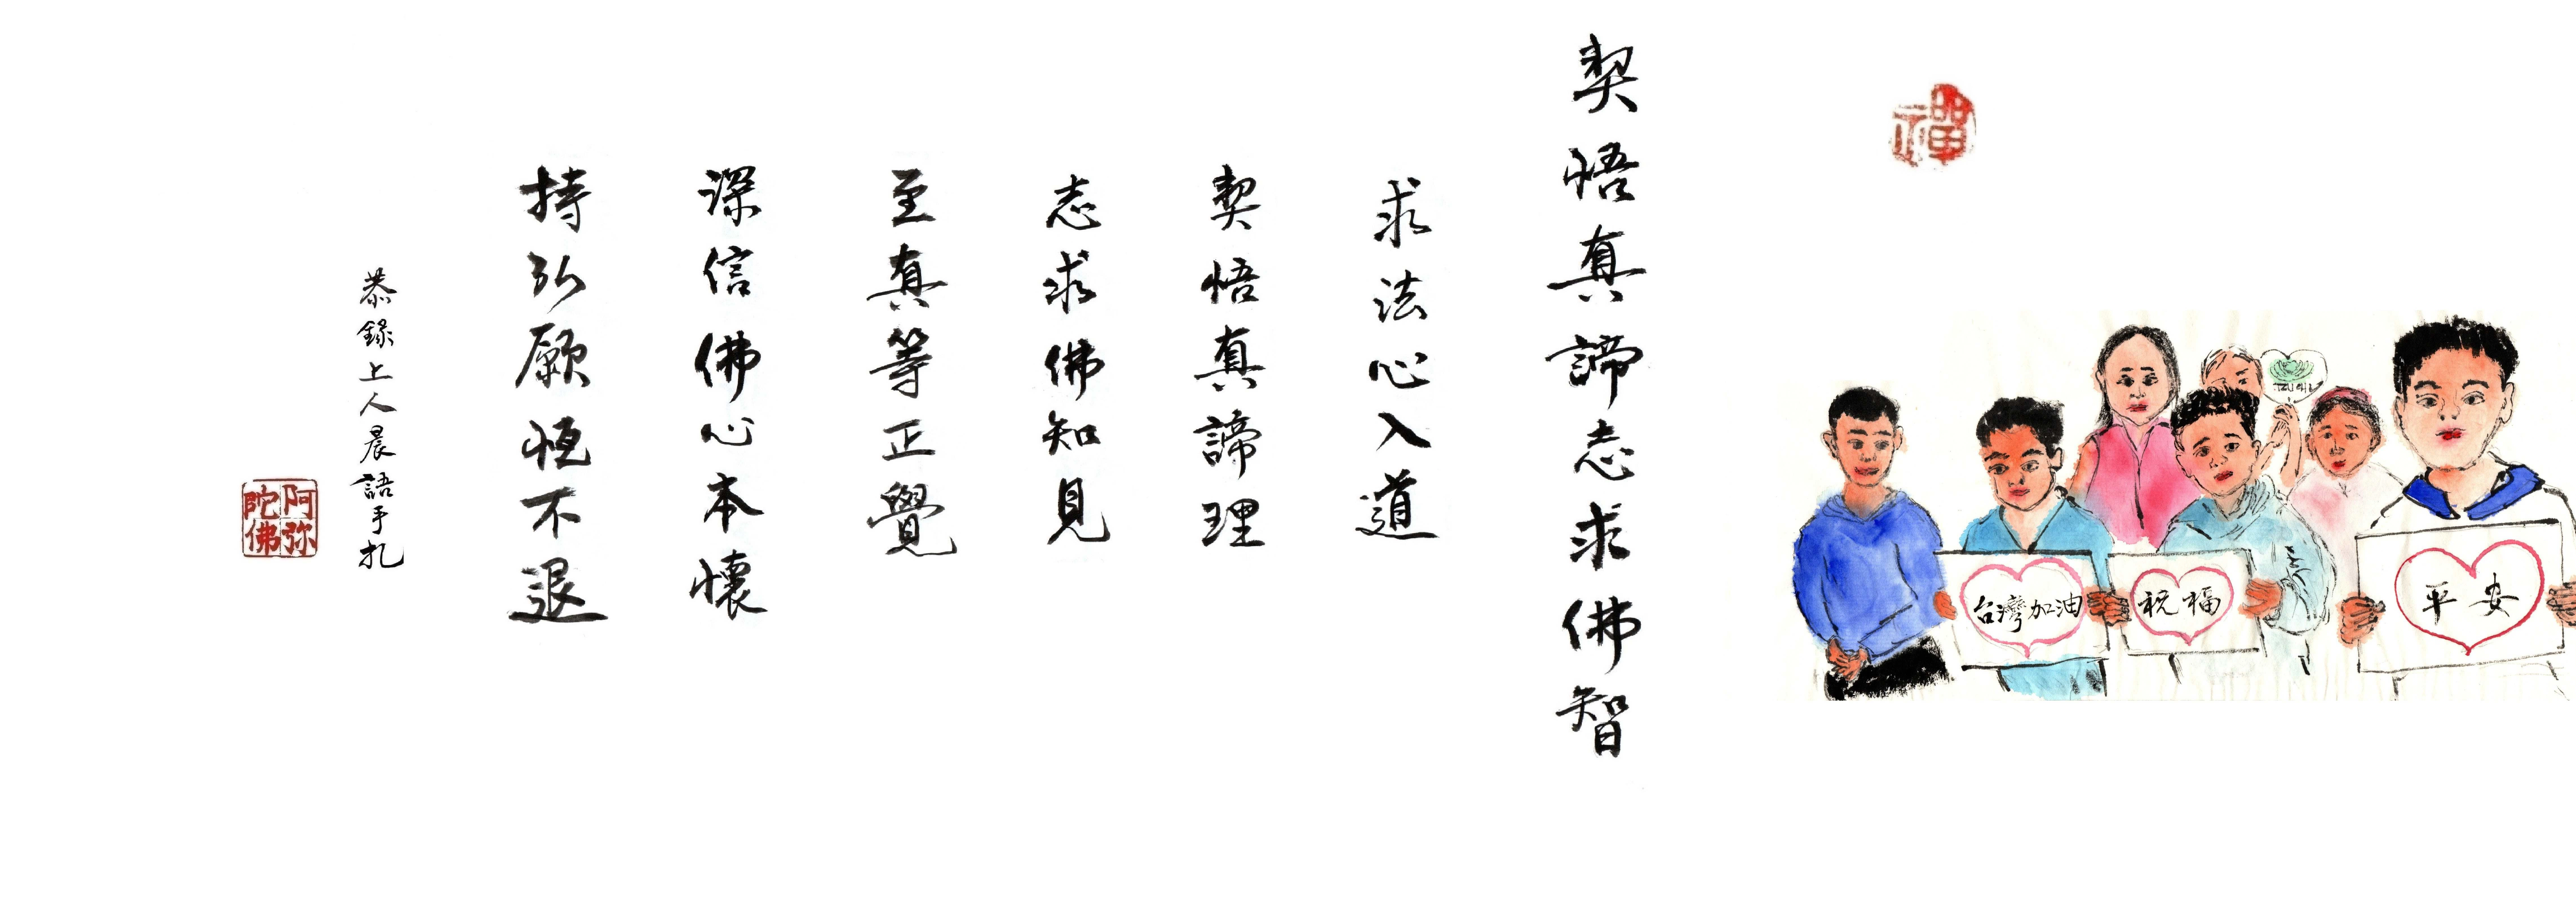 禪
台灣加油
祝福
平安
TZU CHI
契悟真諦志求佛智
求法心入道
契悟真諦理
志求佛知見
至真等正覺
深信佛心本懷
持弘願恆不退
恭錄上人晨語手札
阿弥陀佛